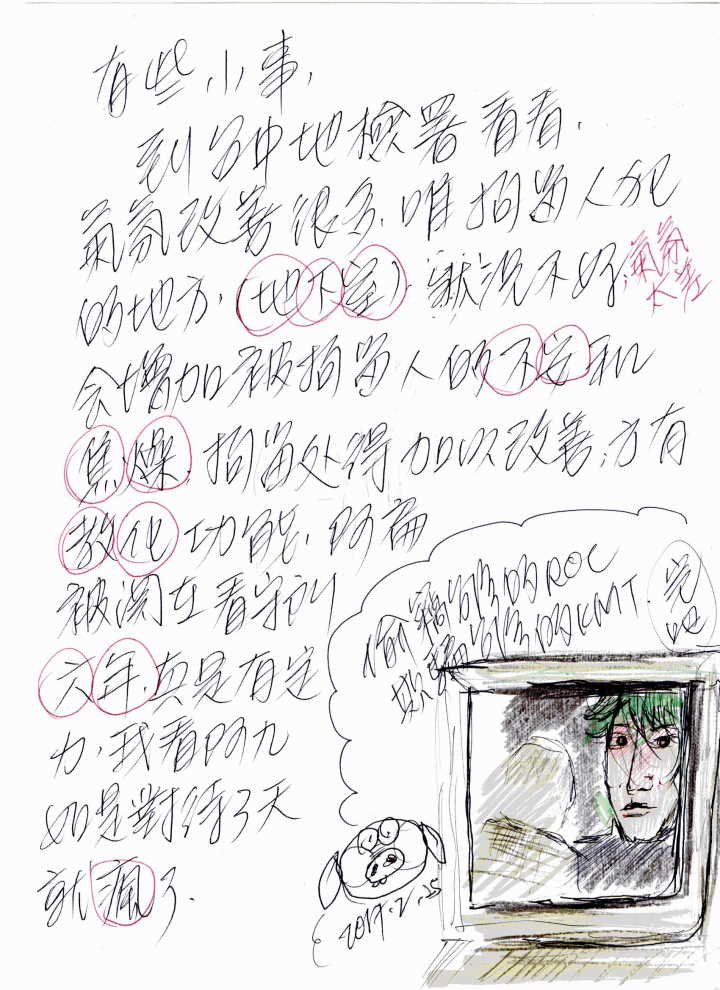 有些小事,
到台中地檢署看看.
氣氛改善很多.唯拘留人犯
的地方,(地下室).狀況不好,氣氛太差
会增加被拘留人的不安和
焦燥.拘留处得加以改善,方有
教化功能.阿扁
被関在看守所
六年,真是有定
力,我看阿九
如是對待3天
就瘋了.
偷竊当修的ROC
欺騙当修的KMT.
完吧
2017.2.25